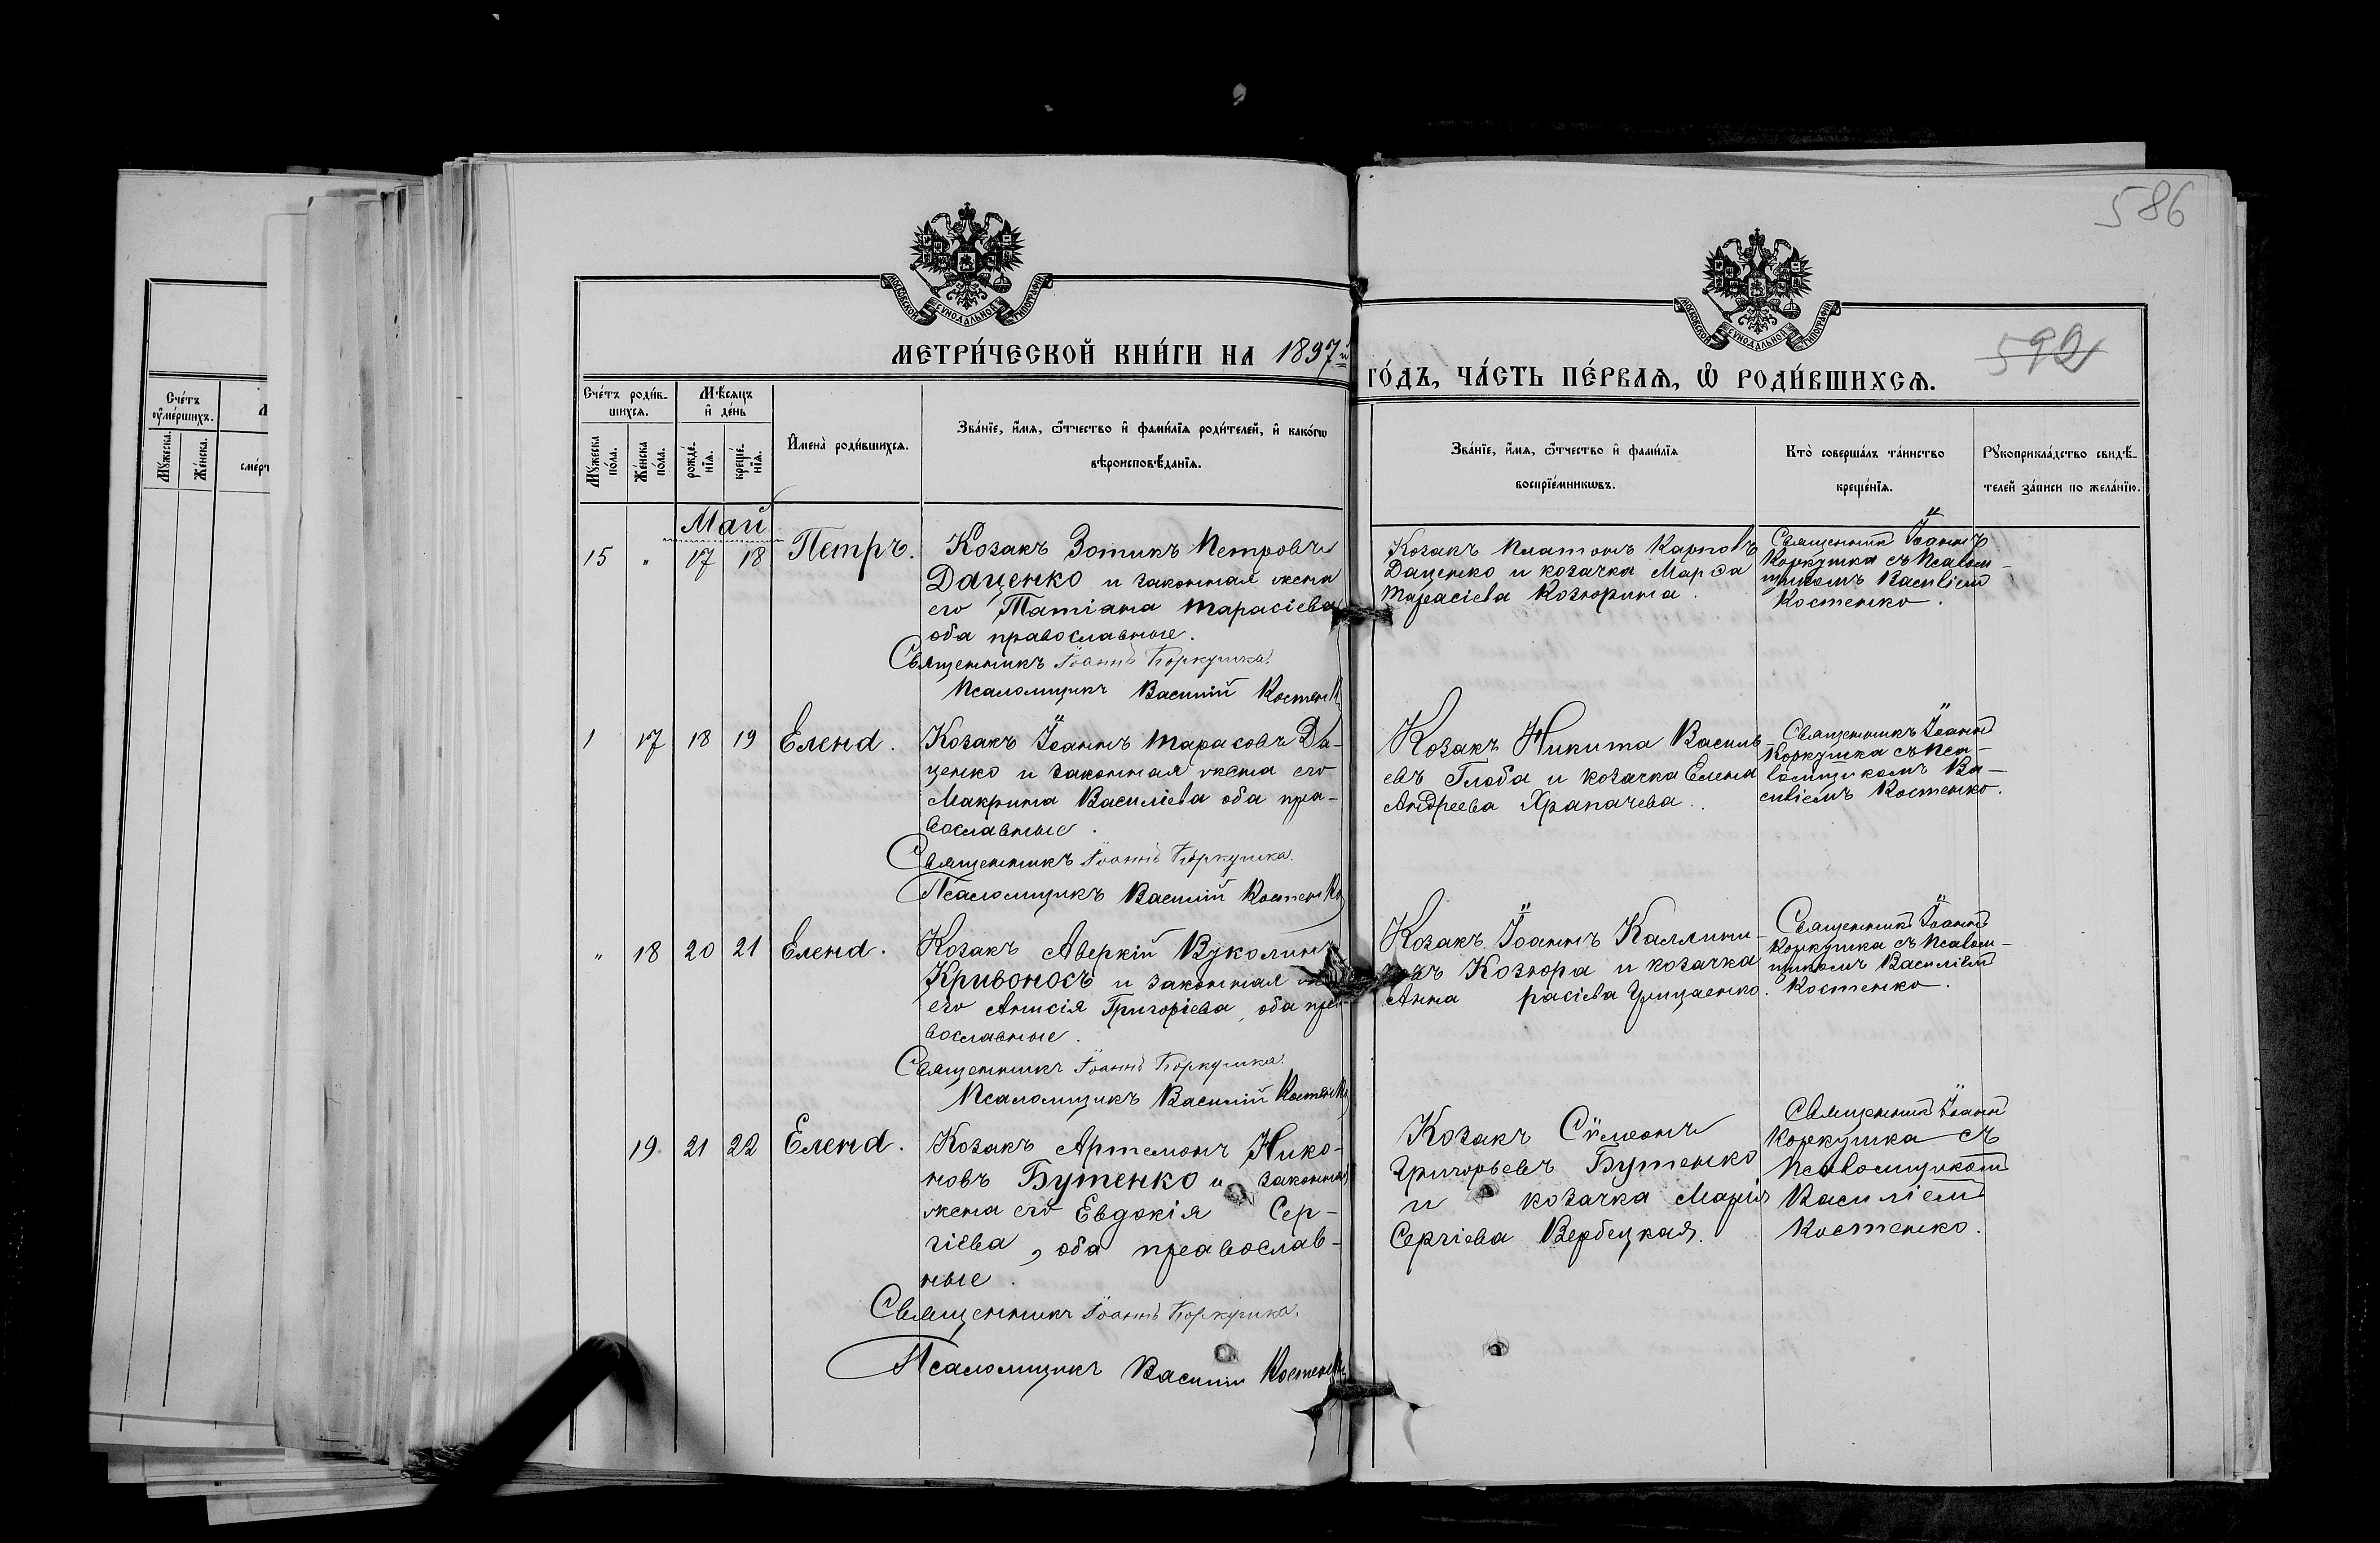 586
МОСКОВСКОЙ СѴНОДАЛЬНОЙ ТИПОГРАФІИ
МОСКОВСКОЙ СѴНОДАЛЬНОЙ ТИПОГРАФІИ
МЕТРИ́ЧЕСКОЙ КНИ́ГИ НА 1897й
ГО́ДЪ, ЧА́СТЬ ПЕ́РВАЯ, Ѡ РОДИ́ВШИХСЯ.
592
Сче́тъ ᲂу҆ме́ршихъ.
Мꙋ́жеска.
Же́нска.
Сче́тъ роди́в-
шихся.
Мꙋ́жеска по́ла.
Же́нска по́ла.
Мѣ́сяцъ и҆ де́нь
рожде́нїя.
креще́нїя.
И҆мена̀ роди́вшихся.
Зва́нїе, и҆́мя, ѻ҆́тчество и҆ фами́лїя роди́телей, и҆ како́гѡ
вѣроисповѣ́данїя.
Зва́нїе, и҆́мя, ѻ҆́тчество и҆ фами́лїя
воспрїе́мникѡвъ.
Кто̀ соверша́лъ та́инство
креще́нїя.
Рꙋкоприкла́дство свидѣ́-
телей за́писи по жела́нїю.
Май
15 " 17 18 Петръ.
Козакъ Зотикъ Петровъ
Даценко и законная жена
его Татіана Тарасіева
оба православные.
Священникъ Іоаннъ Коркушка.
Псаломщикъ Василій Костенк
Козакъ Платонъ Карповъ
Даценко и козачка Марѳа
Тарасіева Козюрина.
Священник Іоаннъ
Коркушка съ Псалом-
щикомъ Василіем
Костенко.
1 17 18 19 Елена.
Козакъ Іоаннъ Тарасовъ Да-
ценко и законная жена его
Макрина Василіева оба пра-
вославные.
Священникъ Іоаннъ Коркушка.
Псаломщикъ Василій Костенко
Козакъ Никита Василь-
евъ Глоба и козачка Елена
Андреева Храпачева.
Священникъ Іоанн
Коркушка съ Пса-
ломщикомъ Ва-
силіемъ Костенко.
" 18 20 21 Елена.
Козакъ Аверкій Вуколинъ
Кривоносъ и законная
его Анисія Григоріева, оба пра-
вославные.
Священникъ Іоаннъ Коркушка.
Псаломщикъ Василій Костенко
Козакъ Іоаннъ Каллини-
Козюра и козачка
Анна расіева Грицаенко.
Священник Іоанн
Коркушка съ Псалом-
щикомъ Василіем
Костенко.
19. 21 22 Елена.
Козакъ Артемонъ Нико-
новъ Бутенко и законная
жена его Евдокія Сер-
гіева, оба православ-
ные.
Священникъ Іоаннъ Коркушка.
Псаломщикъ Василій Костенк
Козакъ Сѵмеонъ
Григорьевъ Бутенко
и козачка Марія
Сергіева Вербецкая.
Священник Іоанн
Коркушка съ
Псаломщиком
Василіем
Костенко.